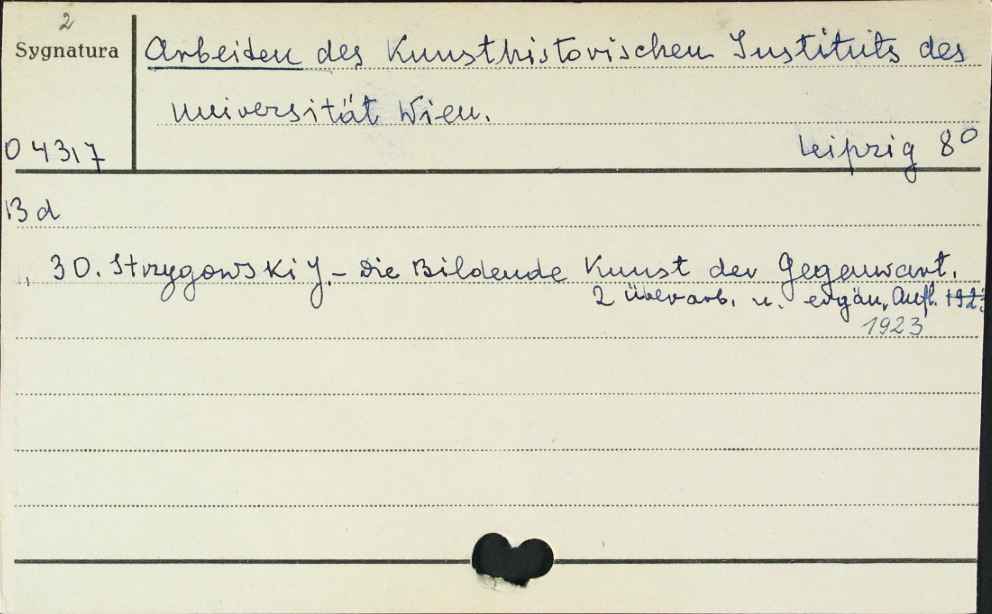 2
Sygnatura
Arbeiten des Kunsthistorischen Instituts des
Universität Wien.
O 4317
Leipzig 8⁰
Bd
30. Strzygowski J. – Die Bildende Kunst der Gegenwart.
2 überarb. u. ergän. Aufl. 192
1923